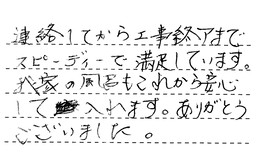 連絡してから工事終了まで
スピーディーで満足しています。
我家の風呂もこれから安心
して入れます。ありがとう
ございました。